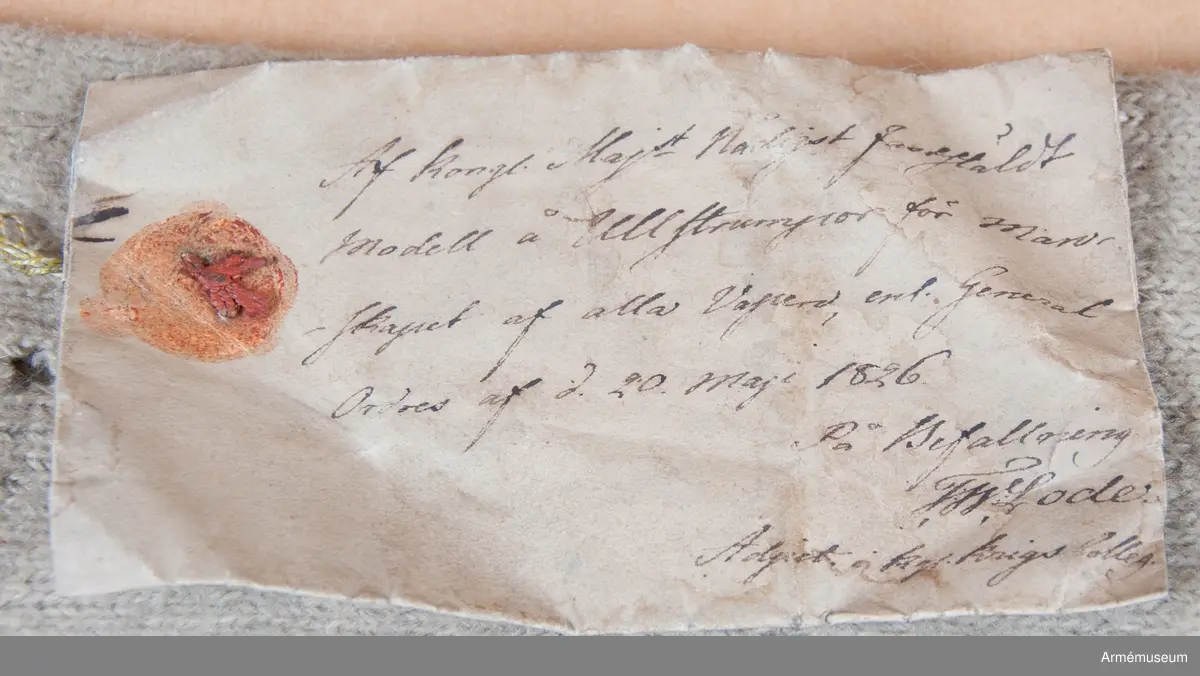 Af Kongl. Majst Nådigst fastställdt
Modell å Ullstrumpor för Man-
-skapet af alla Vapen, enl. General
Ordres af d. 20. Maji 1826.
På Befallning
Lode.
Adjut. i kgl. Krigs Colleg.
Armémuseum